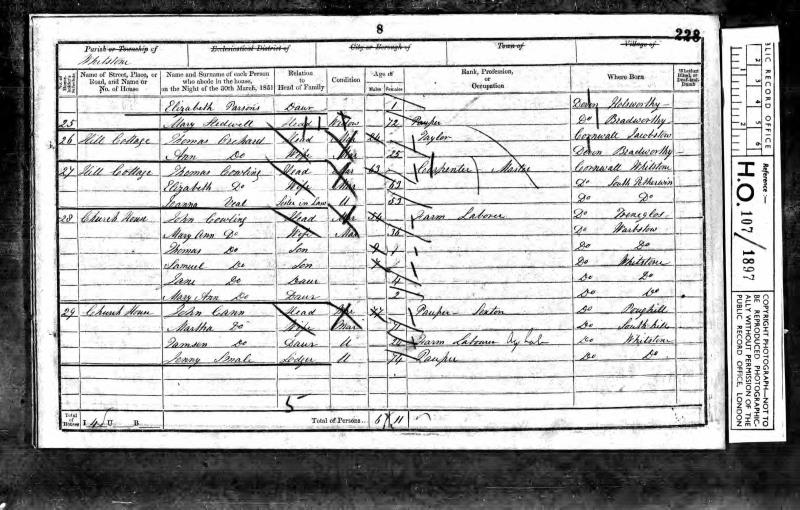 8
228
Parish or Township of
Ecclesiastical District of
City or Borough of
Town of
Village of
Whitstone
Name of Street, Place, or Road, and Name or No. of House
Name and Surname of each Person who abode in the house, on the Night of the 30th March, 1851
Relation to Head of Family
Condition
Age of
Males Females
Rank, Profession, or Occupation
Where Born
Whether Blind, or Deaf-and-Dumb
Elizabeth Parsons Daur 1 Devon Holsworthy
25 Mary Hedwell Head Widow 72 Pauper Do Bradworthy
26 Hill Cottage Thomas Orchard Head Mar 24 Taylor Cornwall Jacobstow
Ann Do Wife Mar 25 Devon Bradworthy
27 Hill Cottage Thomas Cowling Head Mar 63 Carpenter Master Cornwall Whitstone
Elizabeth Do Wife Mar 63 Do South Petherwin
Neal Sister in Law U 53 Do Do
28 Church House John Cowling Head Mar 34 Farm Laborer Do Treneglos
Mary Ann Do Wife Mar 36 Do Warbstow
Thomas Do Son Do Do
Samuel Do Son Do Whitstone
Jane Do Daur 4 Do Do
Mary Ann Do Daur 2 Do Do
29 Church House John Cann Head Mar 77 Pauper Sexton Do Poughill
Martha Do Wife Mar 71 Do Southhill
Tamson Do Daur U 24 Farm Labourer Do Whitstone
Jenny Lodger U 74 Pauper Do Do
5
Total of Houses I 4 U B
Total of Persons 6 11
PUBLIC RECORD OFFICE
Reference :—
H.O. 107/1897
COPYRIGHT PHOTOGRAPH—NOT TO BE REPRODUCED PHOTOGRAPHICALLY WITHOUT PERMISSION OF THE PUBLIC RECORD OFFICE, LONDON